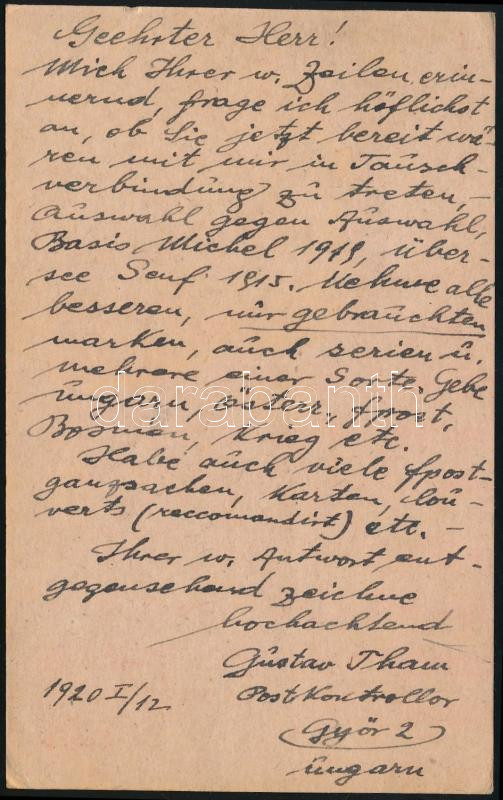 Geehrter Herr!
Mich Ihrer w. Zeilen erin-
nernd, frage ich höflichst
an, ob Sie jetzt bereit wä-
ren mit mir in Tausch-
verbindung zu treten, -
Auswahl gegen Auswahl,
Basis Michel 1919, über-
see Senf 1915. Nehme alle
besseren, nur gebrauchten
marken, auch serien u.
mehrere einer Sorte. Gebe
Ungarn, österr, fpost,
Bosnien, Krieg etc.
Habe auch viele fpost-
ganzsachen, Karten, Cou-
verts (reccomandirt) etc. -
Ihrer w. Antwort ent-
gegensehend zeichne
hochachtend
Gustav Tham
1920 I/12 Postkontrollor
Győr 2
Ungarn
darabanth